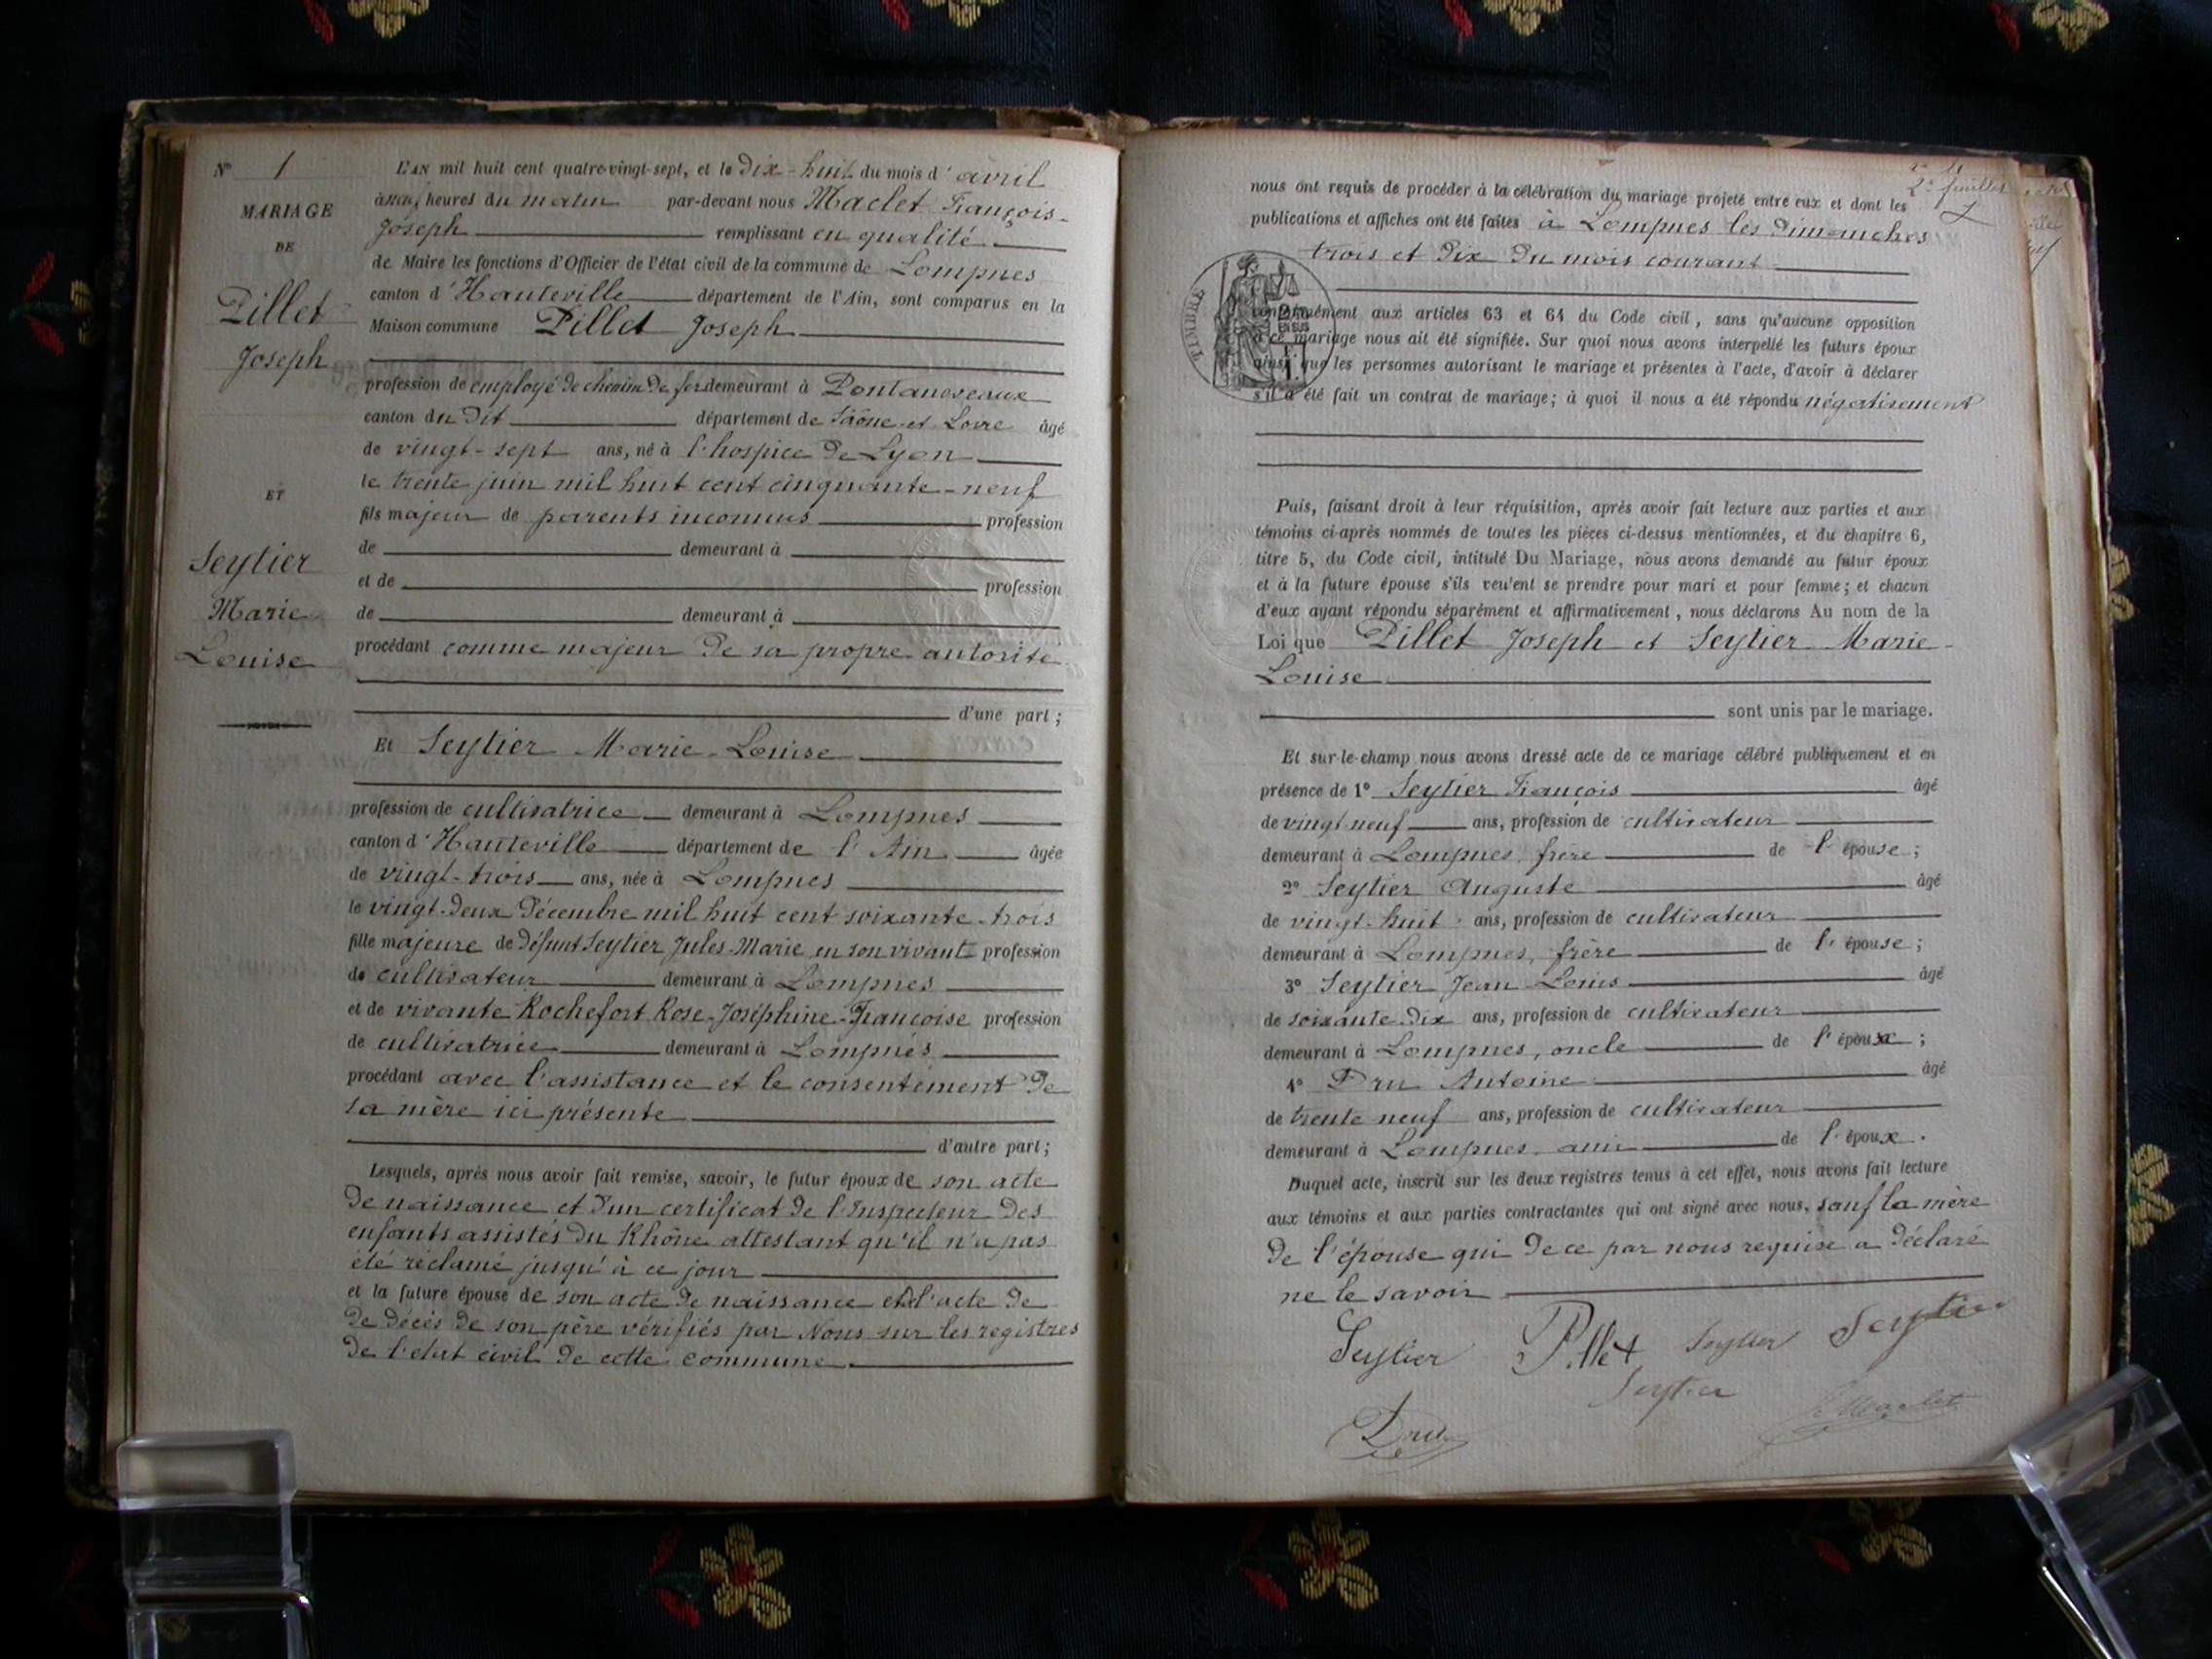 N° 1
MARIAGE
DE
Pillet
Joseph
ET
Seytier
Marie
Louise
L'AN mil huit cent quatre-vingt-sept, et le Dix-huit du mois d'avril
à neuf heures du matin par-devant nous Maclet François-
Joseph remplissant en qualité
de Maire les fonctions d'Officier de l'état civil de la commune de Lompnes
canton d'Hauteville département de l'Ain, sont comparus en la
Maison commune Pillet Joseph
profession de employé de chemin de fer demeurant à Pontanevaux
canton du dit département de Saône-et-Loire âgé
de vingt-sept ans, né à l'hospice de Lyon
le trente juin mil huit cent cinquante-neuf
fils majeur de parents inconnus profession
de demeurant à
et de profession
de demeurant à
procédant comme majeur de sa propre autorité
d'une part;
Et Seytier Marie-Louise
profession de cultivatrice demeurant à Lompnes
canton d'Hauteville département de l'Ain âgée
de vingt-trois ans, née à Lompnes
le vingt-deux Décembre mil huit cent soixante-trois
fille majeure de défunt Seytier Jules-Marie en son vivant profession
de cultivateur demeurant à Lompnes
et de vivante Rochefort Rose-Joséphine-Françoise profession
de cultivatrice demeurant à Lompnes
procédant avec l'assistance et le consentement de
sa mère ici présente
d'autre part;
Lesquels, après nous avoir fait remise, savoir, le futur époux de son acte
de naissance et d'un certificat de l'Inspecteur des
enfants assistés du Rhône attestant qu'il n'a pas
été réclamé jusqu'à ce jour
et la future épouse de son acte de naissance et de l'acte de
de décès de son père vérifiés par Nous sur les registres
de l'état civil de cette commune.
2e feuillet
nous ont requis de procéder à la célébration du mariage projeté entre eux et dont les
publications et affiches ont été faites à Lompnes les dimanches
trois et dix du mois courant
TIMBRE
conformément aux articles 63 et 64 du Code civil, sans qu'aucune opposition
à ce mariage nous ait été signifiée. Sur quoi nous avons interpellé les futurs époux
ainsi que les personnes autorisant le mariage et présentes à l'acte, d'avoir à déclarer
s'il a été fait un contrat de mariage; à quoi il nous a été répondu négativement
Puis, faisant droit à leur réquisition, après avoir fait lecture aux parties et aux
témoins ci-après nommés de toutes les pièces ci-dessus mentionnées, et du chapitre 6,
titre 5, du Code civil, intitulé Du Mariage, nous avons demandé au futur époux
et à la future épouse s'ils veulent se prendre pour mari et pour femme; et chacun
d'eux ayant répondu séparément et affirmativement, nous déclarons Au nom de la
Loi que Pillet Joseph et Seytier Marie-
Louise
sont unis par le mariage.
Et sur-le-champ nous avons dressé acte de ce mariage célébré publiquement et en
présence de 1° Seytier François âgé
de vingt neuf ans, profession de cultivateur
demeurant à Lompnes, frère de l'épouse;
2° Seytier Auguste âgé
de vingt-huit ans, profession de cultivateur
demeurant à Lompnes, frère de l'épouse;
3° Seytier Jean-Louis âgé
de soixante-dix ans, profession de cultivateur
demeurant à Lompnes, oncle de l'époux;
4° Dru Antoine âgé
de trente neuf ans, profession de cultivateur
demeurant à Lompnes ami de l'époux.
Duquel acte, inscrit sur les deux registres tenus à cet effet, nous avons fait lecture
aux témoins et aux parties contractantes qui ont signé avec nous, sauf la mère
de l'épouse qui de ce par nous requise a déclaré
ne le savoir
Seytier Pillet Seytier Seytier
Seytier
Dru Maclet